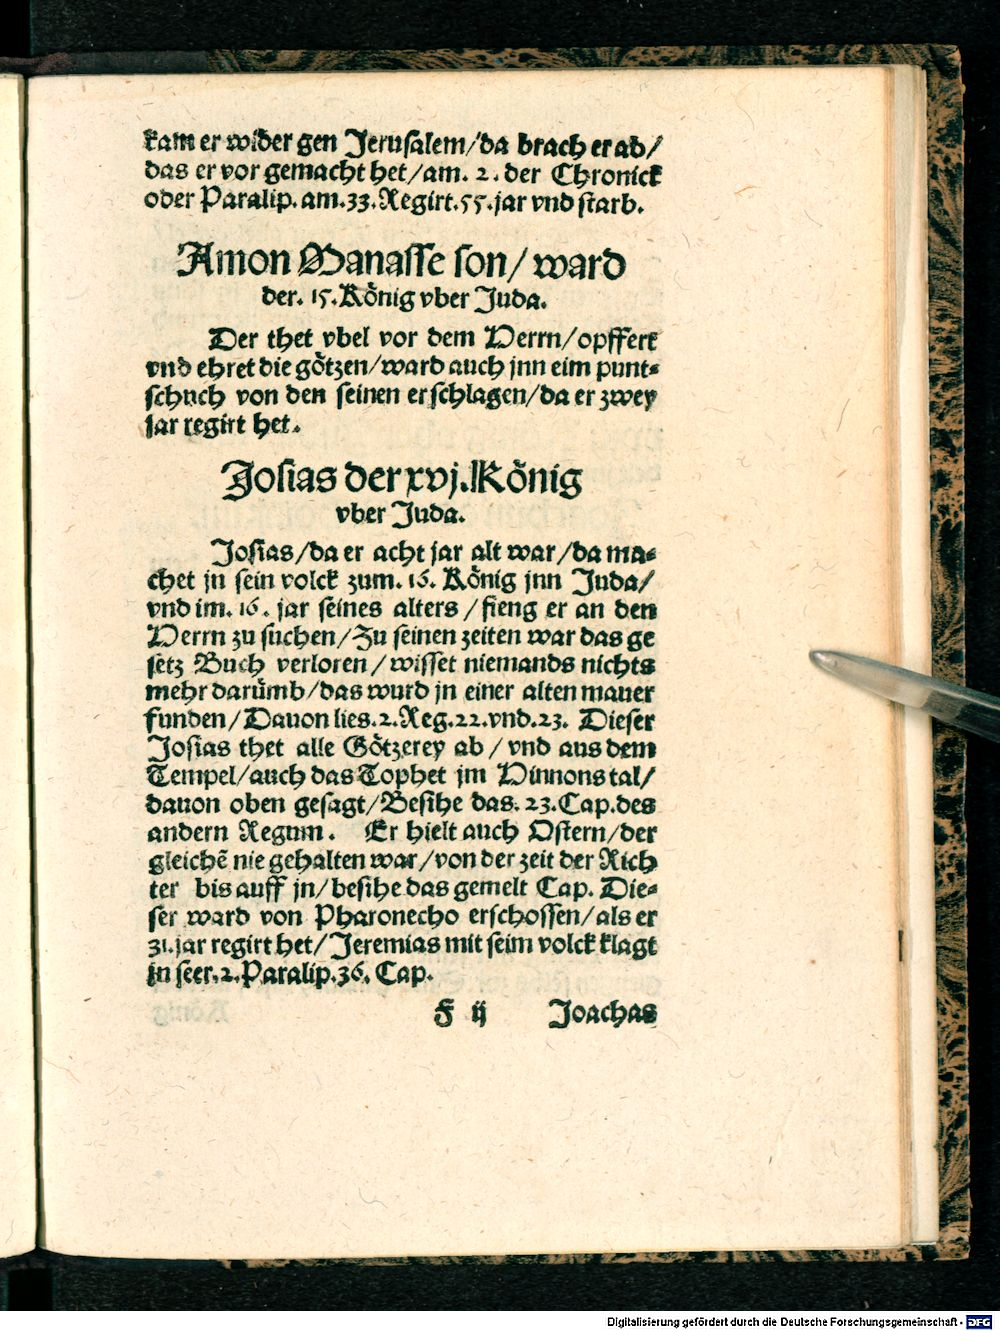 kam er wider gen Jerusalem/da brach er ab/
das er vor gemacht het/am. 2. der Chronick
oder Paralip. am. 33. Regirt. 55. jar vnd starb.
Amon Manasse son/ward
der. 15. König vber Juda.
Der thet vbel vor dem Herrn/opffert
vnd ehret die götzen/ward auch jnn eim punt-
schuch von den seinen erschlagen/da er zwey
jar regirt het.
Josias der xvj. König
vber Juda.
Josias/da er acht jar alt war/da ma-
chet jn sein volck zum. 16. König jnn Juda/
vnd im. 16. jar seines alters/fieng er an den
Herrn zu suchen/Zu seinen zeiten war das ge
setz Buch verloren/wisset niemands nichts
mehr darümb/das wurd jn einer alten mauer
funden/Dauon lies. 2. Reg. 22. vnd. 23. Dieser
Josias thet alle Götzerey ab/vnd aus dem
Tempel/auch das Tophet jm Hinnons tal/
dauon oben gesagt/Besihe das. 23. Cap. des
andern Regum. Er hielt auch Ostern/der
gleichē nie gehalten war/von der zeit der Rich
ter bis auff jn/besihe das gemelt Cap. Die-
ser ward von Pharonecho erschossen/als er
31. jar regirt het/Jeremias mit seim volck klagt
jn seer. 2. Paralip. 36. Cap.
F ij Joachas
Digitalisierung gefördert durch die Deutsche Forschungsgemeinschaft - DFG